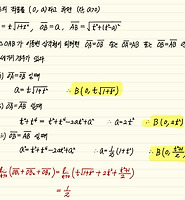 의 좌표를 (0, a)라고 하면 (0, a)
= t√(1+t²), OB = a, AB = √(t²+(t²-a)²)
△OAB가 이등변 삼각형이 되려면 OA=OB 또는 OA=AB 또는 OB=AB
세가지 경우가 있다
i) OA=OB 일때
a = t√(1+t²) ∴ B(0, t√(1+t²))
ii) OA=AB 일때
t²+t⁴ = t²+t⁴-2at²+a² ∴ a=2t² ∴ B(0, 2t²)
) OB=AB 일때
a² = t²+t⁴-2at²+a² ∴ a=½(1+t²) ∴ B(0, (t²+1)/2)
(OB₁+OB₂+OB₃) = (t√(1+t²)+2t²+(t²+1)/2)
= 1/2